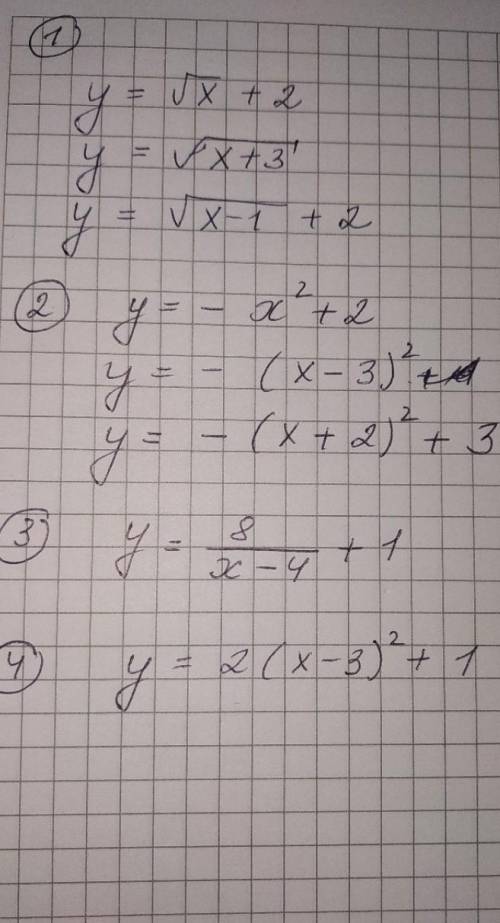 1
y = √x + 2
y = √(x+3)
y = √(x-1) + 2
2 y = - x² + 2
y = - (x - 3)²
y = - (x + 2)² + 3
3 y = 8/(x - 4) + 1
4 y = 2(x-3)² + 1